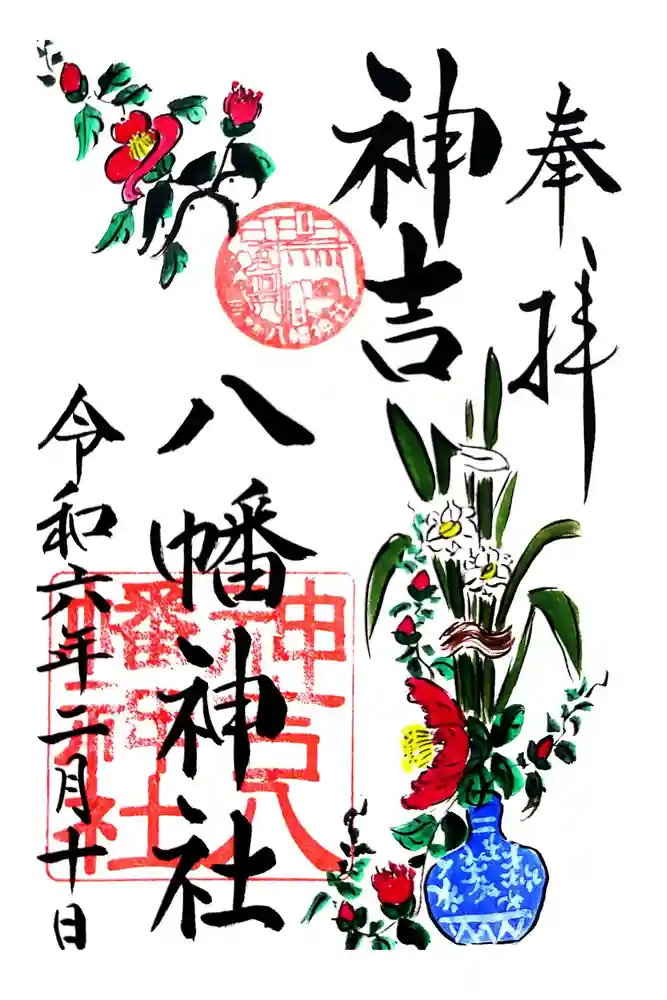 奉拝
神吉
八幡神社
令和六年二月十日
神吉八
幡神社
八幡神社